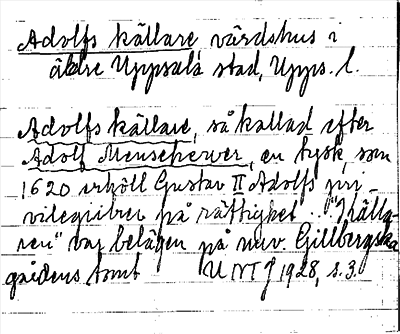 Adolfs källare värdshus i
äldre Uppsala stad, Upps. l.
Adolfs källare, så kallad efter
Adolf Menscherver, en tysk, som
1620 erhöll Gustav II Adolfs pri-
vilegiibrev på rättighet... "Källa-
ren" var belägen på nuv. Gillbergska
gårdens tomt UNTJ 1928, s. 3.